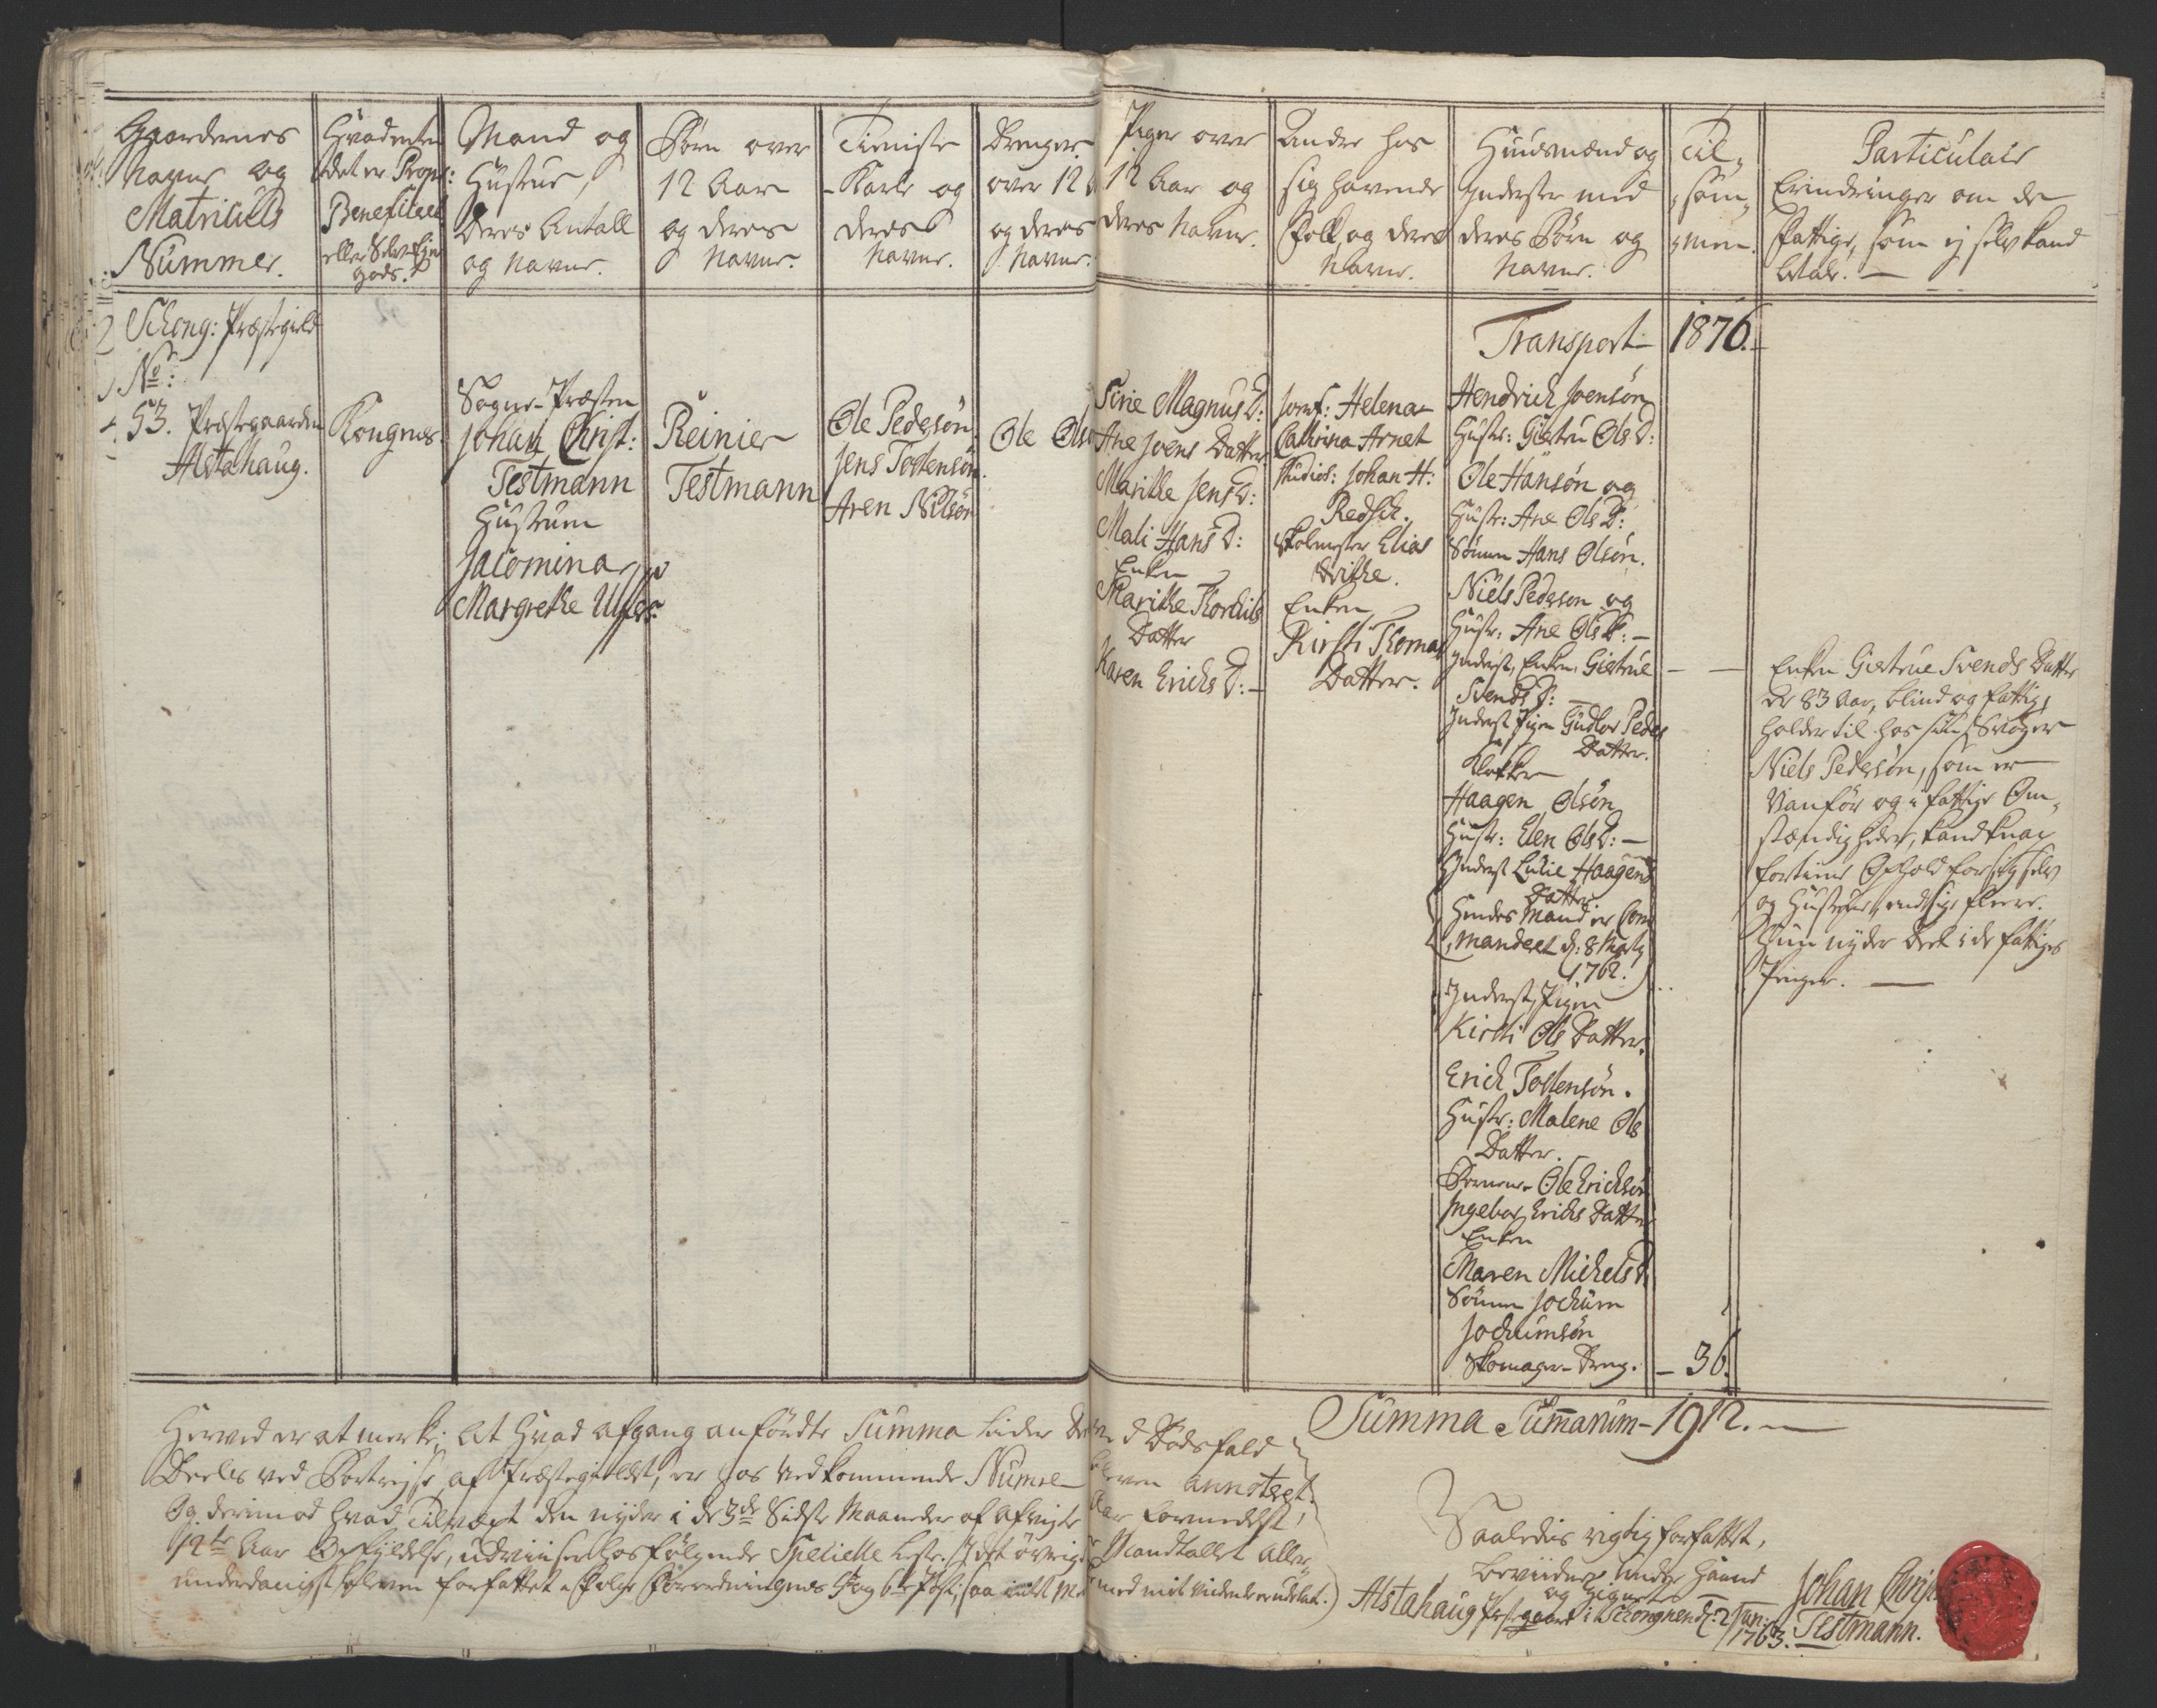 Gaardenes
Navne og
Matriculs
Nummer.
Hvad enten
det er Propr:
Beneficeed
eller Selv Ejer
gods.
Mand og
Hustrue,
deres Antall
og Navne.
Børn over
12 Aar
og deres
Navne.
Tieniste
Karle og
deres
Navne.
Drenger
over 12
og deres
Navne.
Piger over
12 Aar og
deres Navne.
Andre hos
sig havende
Folk, og deres
Navne.
Huusmænd og
Inderster med
deres Børn og
Navne.
Til-
sam-
men.
Particulair
Erindringer om de
Fattige, som ej selv kand
betale. —
Schong: Præstegield
No:
53. Præstegaarden
Alstahaug.
Kongens.
Sogne-Præsten
Johan Christ:
Testmann
Hustruen
Jacomina
Margrethe
Reinier
Testmann
Ole Pedersøn
Jens Tostensøn.
Aren Nilsøn
Ole Olsø
Sirie Magnus D:
Ane Joens Datter
Marithe Jens D:
Mali Hans D:
Enken
Marithe Thorchils
Datter
Karen Erichs D: —
Jomf: Helena
Cathrina Arnet
Studios: Johan H:
Skolemester Elias
Enken
Kirsti Thomas
Datter.
Transport — 1876. —
Hendrich Joensøn
Hustr: Giertru Ols D:
Ole Hansøn og
Hustr: Ane Ols D:
Sønnen Hans Olsøn.
Niels Pedersøn og
Hustr: Ane Ols D: —
Inderst, Enken Giertrue
Svends D: —
Inderst Pigen Gudlov Peders
Datter.
Klokker
Haagen Olsøn
Hustr: Elen Ols D: —
Inderst Lucie Haagens
Datter.
Hendes Mand er Com
mandeet d: 8 Marty
1762.
Inderst, Pigen
Kirsti Ols Datter.
Erich Tostensøn.
Hustr: Malene Ols
Datter.
Børnene Ole Erichsøn
Ingebor Erichs Datter
Enken
Maren Michels D:
Sønnen Jochum
Jochumsøn
Skomager-Dreng. — 36.
Enken Giertrue Svends Datter
er 83 Aar, blind og fattig,
holder til hos sin Svoger
Niels Pedersøn, som er
Vanfør og i fattige Om-
stændigheder, kand knap
fortiene Ophold for sig selv
og Hustrue, end sige fleere.
Hun nyder Deel i de fattiges
Penger. —
Summa Summarum — 1912. —
Herved er at merke; At hvad afgang anførdte Summa lider ved Dødsfald
Deeles ved Bortrejse af Præstegieldet, er hos vedkommende Numre bleven annoteret.
Og derimod hvad Tilvext den nyder i de 3de Sidste Maaneder af Aar formedelst,
12te Aars Opfyldelse, udviiser hosfølgende Specielle Liste. I det øvrige Mandtallet aller
underdanigst bleven forfattet i Følge Forordningens 5te og 6te Post, saa intet med mit vidende er udelat.)
Saaledes rigtig forfattet,
bevidner under Haand
og Signete
Alstahaug Præstegaard i Schongnen d: 2 Jan:
1763.
Johan Christ
Testmann.